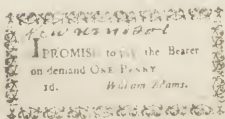 I PROMISE to pay the Bearer
on demand ONE PENNY
1d. William Adams.